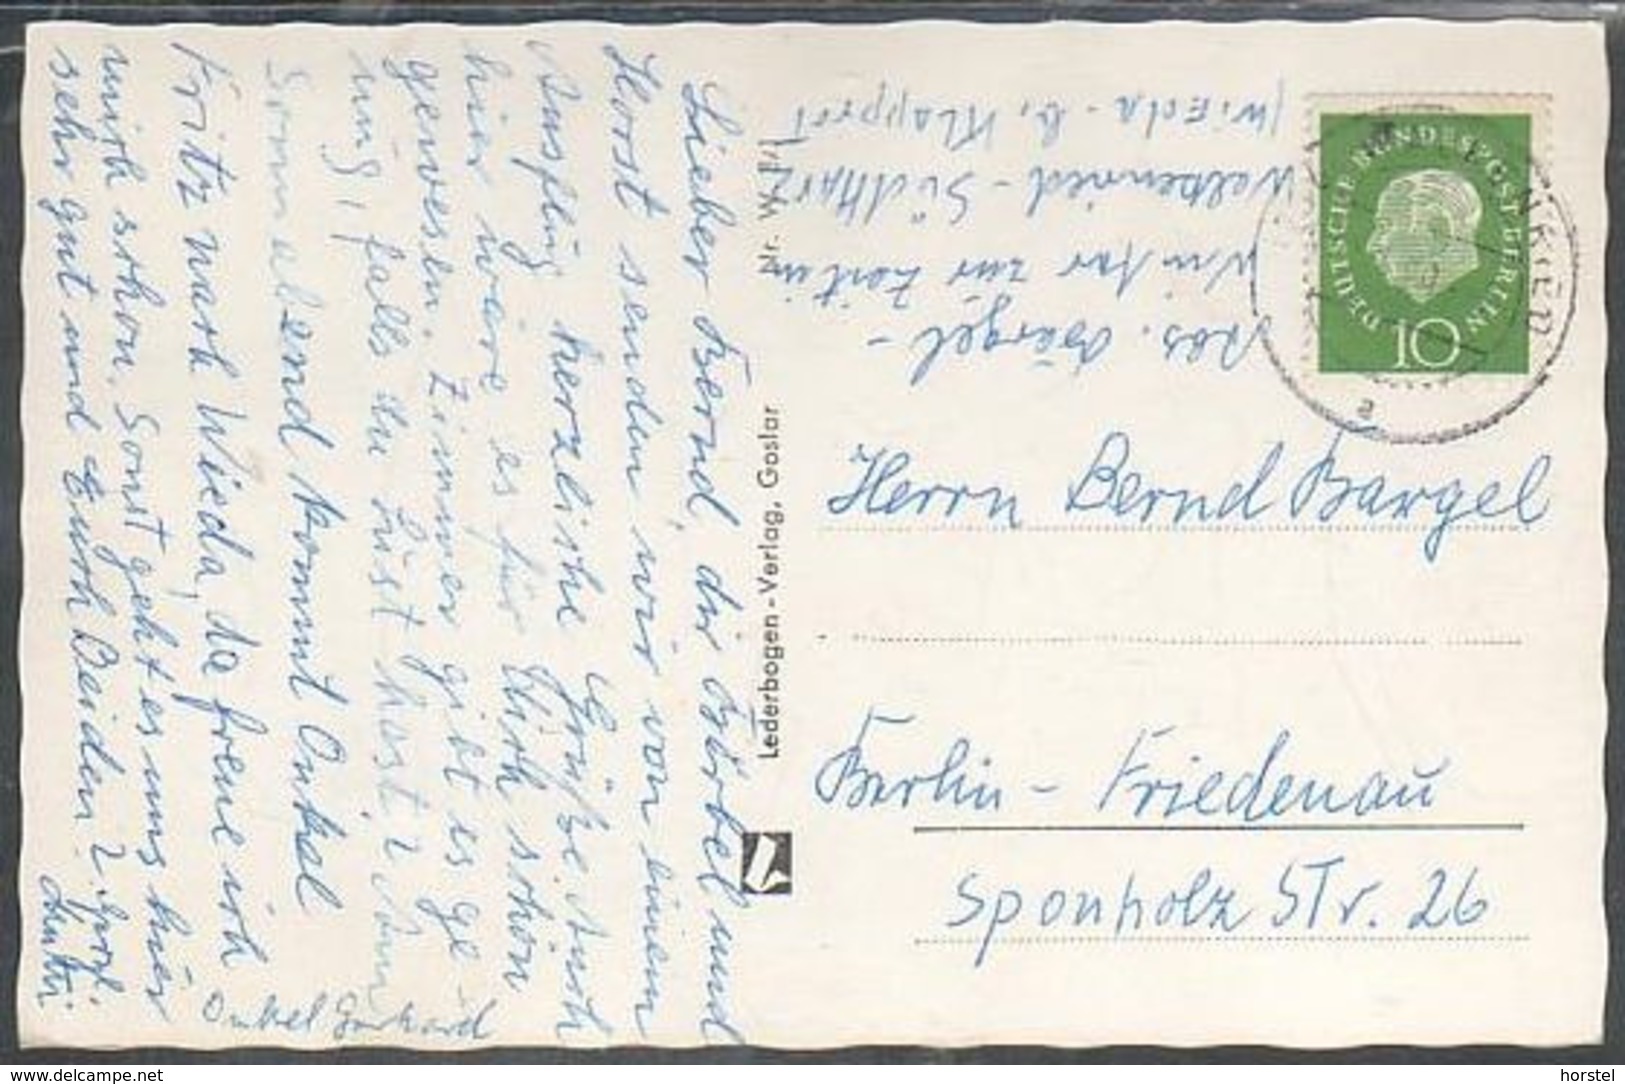 Lieber Bernd, dir Bärbel und
Horst senden wir von einem
Ausflug herzliche Grüße. Auch
hier wäre es für Euch schön
gewesen. Zimmer gibt es ge-
nug, falls du Lust hast? Am
Sonnabend kommt Onkel
Fritz nach Wieda, da freue ich
mich schon. Sonst geht es uns hier
sehr gut und Euch Beiden?
Mutti
Onkel Gerhard
Nr. W
Lederbogen-Verlag, Goslar
Abs. Bargel-
zur Zeit in
Walkenried-Südharz
Wieda - b. Klapprot
DEUTSCHE BUNDESPOST BERLIN
10
a
Herrn Bernd Bargel
Berlin - Friedenau
Sponholz Str. 26
www.delcampe.net
horstel